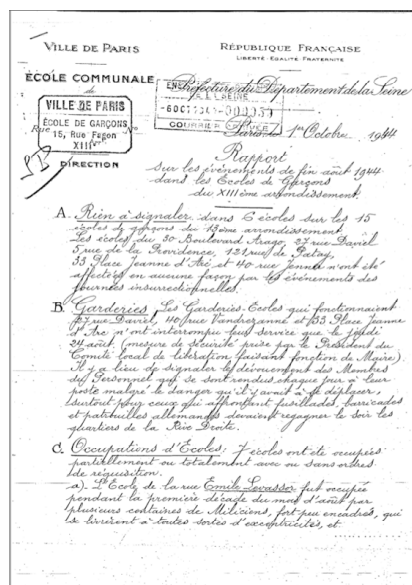 VILLE DE PARIS
RÉPUBLIQUE FRANÇAISE
LIBERTÉ - EGALITÉ - FRATERNITÉ
ÉCOLE COMMUNALE
de
Préfecture du Département de la Seine
VILLE DE PARIS
ÉCOLE DE GARÇONS
15, Rue Fagon
XIIIe
Rue
No
DIRECTION
COURRIER
Paris, 1er Octobre 1944
Rapport
sur les évènements de fin août 1944
dans les Ecoles de Garçons
du XIIIème arrondissement.
A. Rien à signaler dans 6 écoles sur les 15
écoles de garçons du 13ème arrondissement.
Les écoles du 30 Boulevard Arago, 27 rue Daviel
5 rue de la Providence, 121 rue de Patay,
33 Place Jeanne d'Arc et 40 rue Jenner n'ont été
affectées en aucune façon par les évènements des
journées insurrectionnelles.
B. Garderies. Les Garderies-Ecoles qui fonctionnaient
27 rue Daviel, 40 rue Vandrezanne et 33 Place Jeanne
d'Arc n'ont interrompu leur service que le jeudi
24 août (mesure de sécurité prise par le Président du
Comité local de libération faisant fonction de Maire).
Il y a lieu de signaler le dévouement des Membres
du Personnel qui se sont rendus chaque jour à leur
poste malgré le danger qu'il y avait à se déplacer,
surtout pour ceux qui affrontant fusillades, barricades
et patrouilles allemandes devaient regagner le soir les
quartiers de la Rive Droite.
C. Occupations d'Ecoles. 7 écoles ont été occupées
partiellement ou totalement avec ou sans ordres
de réquisition.
a). L'Ecole de la rue Emile Levassor fut occupée
pendant la première décade du mois d'août par
plusieurs centaines de Miliciens, fort peu encadrés, qui
se livrèrent à toutes sortes d'excentricités, et